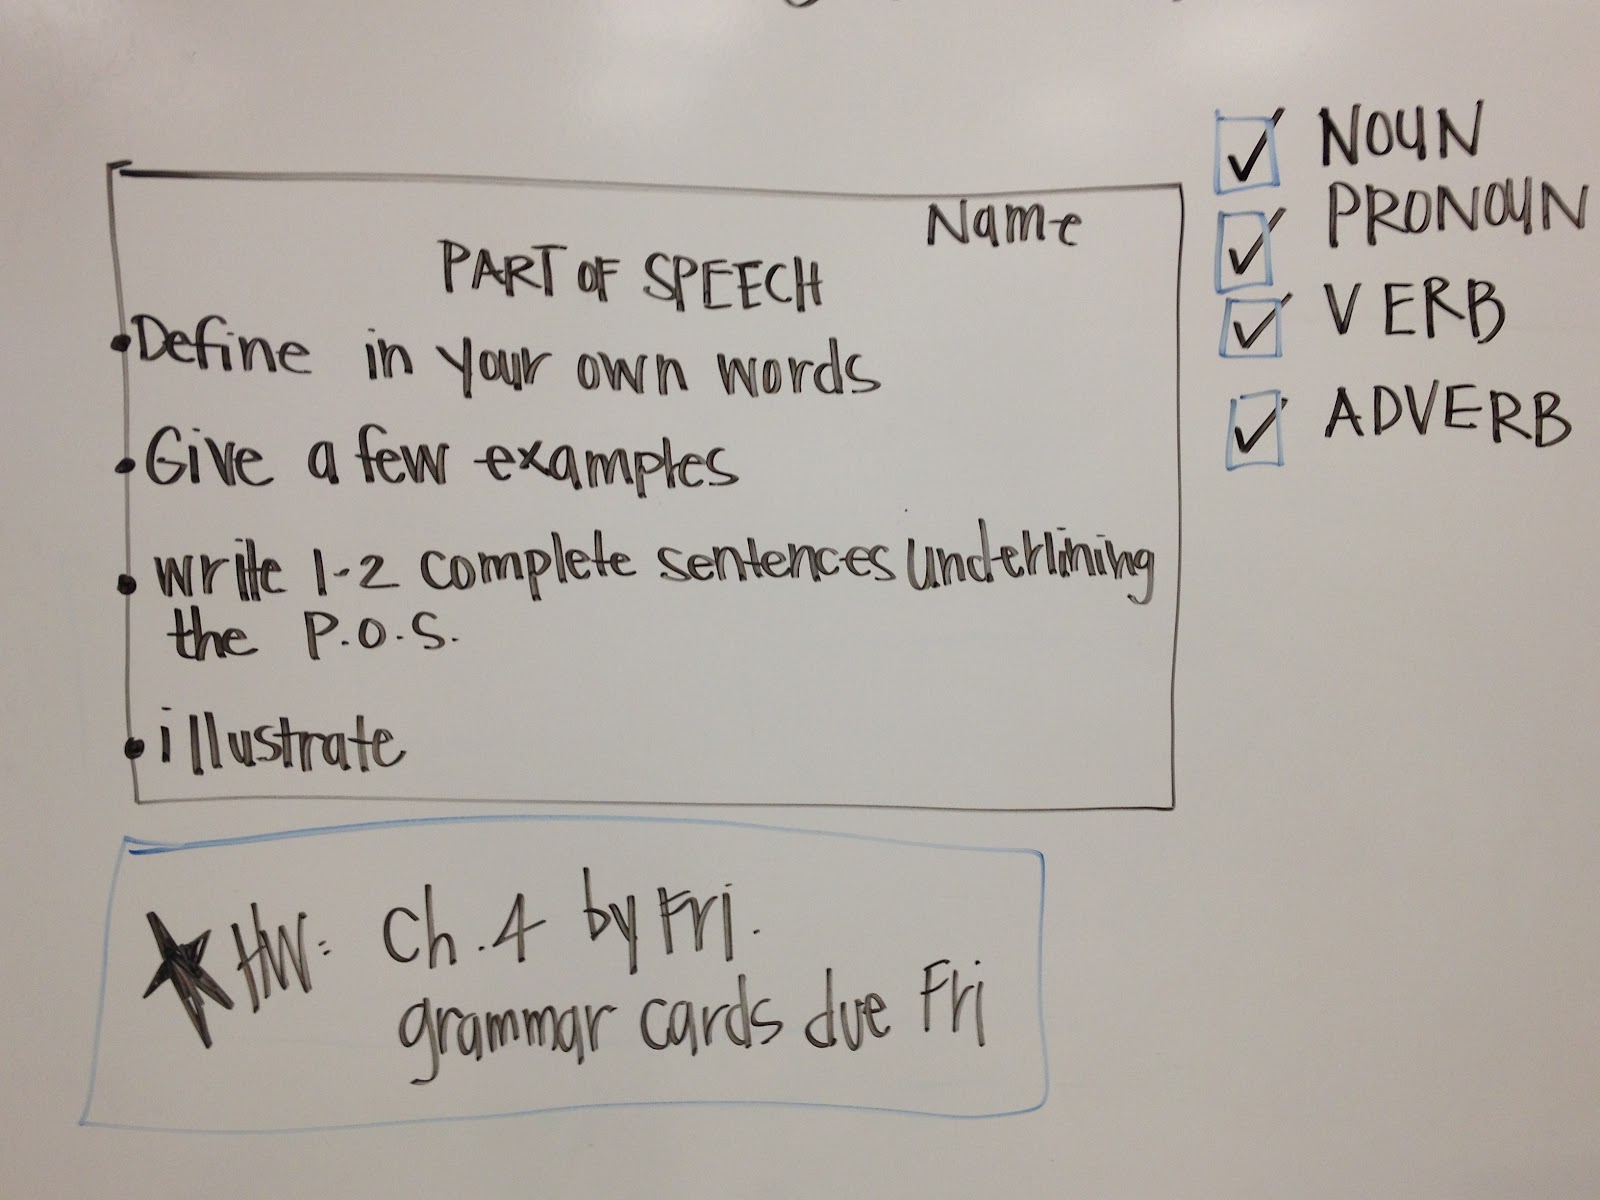 Name
PART OF SPEECH
• Define in your own words
• Give a few examples
• write 1-2 complete sentences underlining
the P.O.S.
• illustrate
NOUN
PRONOUN
VERB
ADVERB
HW: Ch. 4 by Fri.
grammar cards due Fri